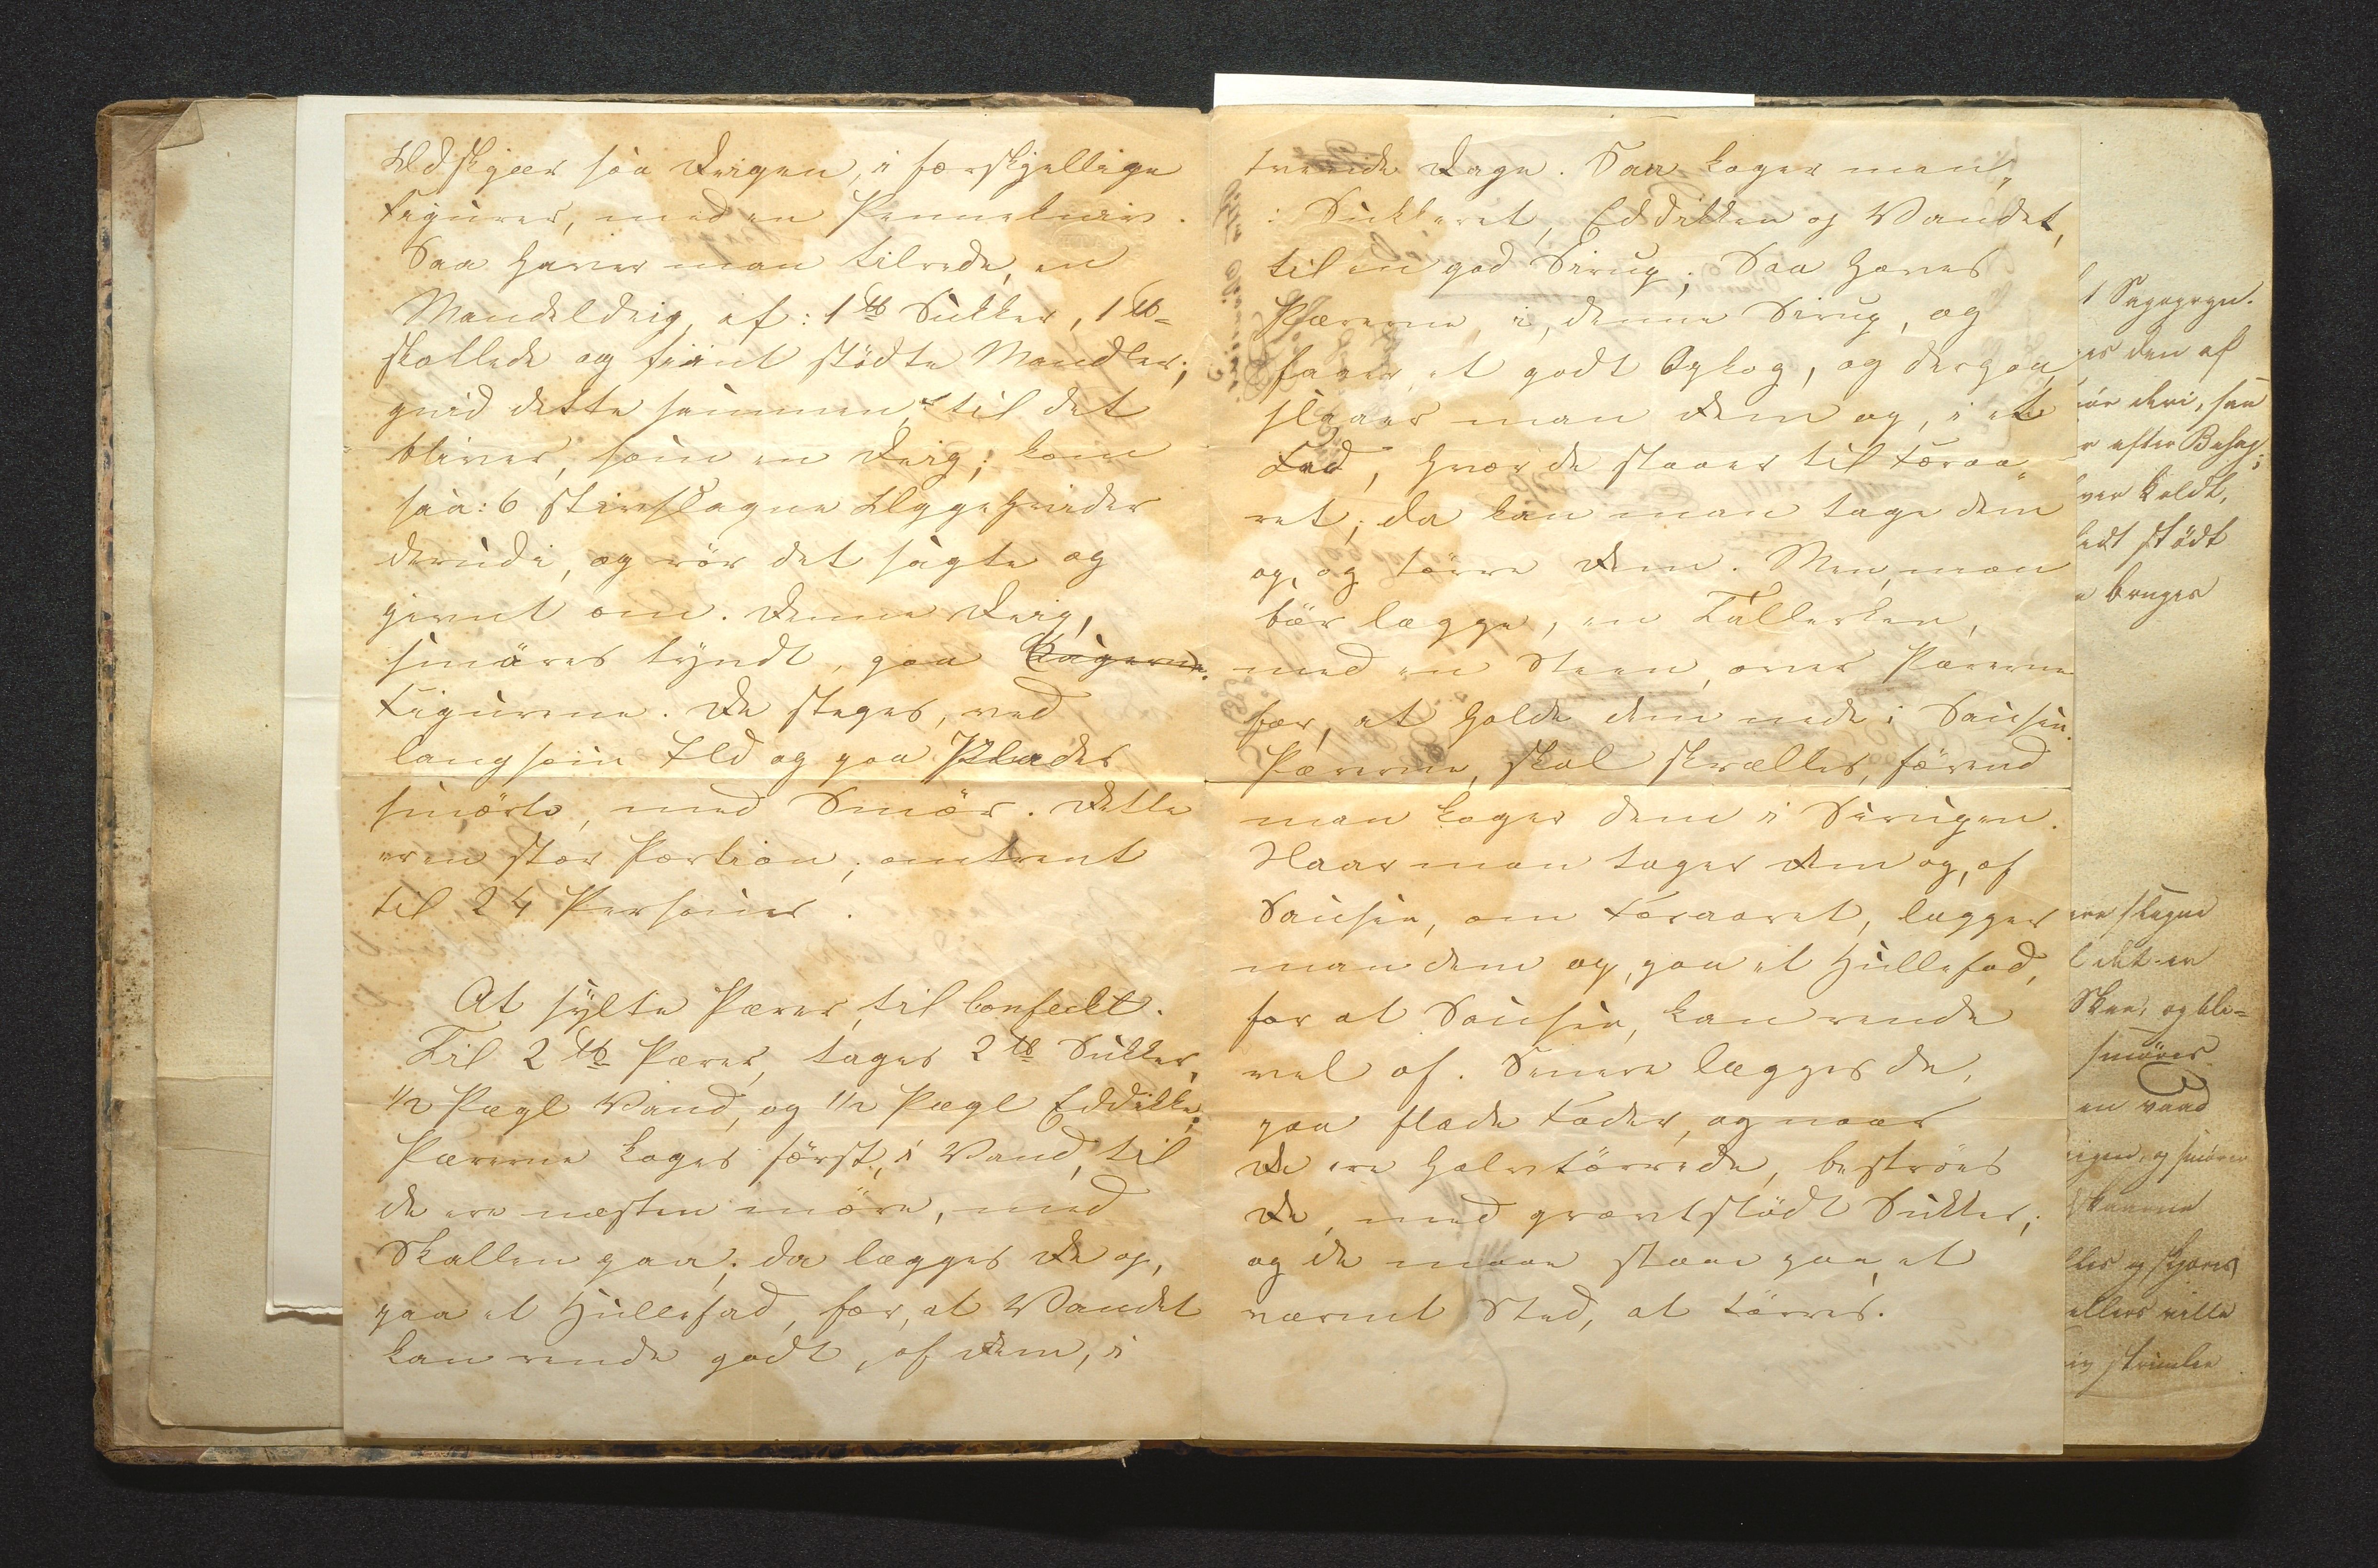 Udskjær saa Deigen, i forskjellige
Figurer, med en Pennekniv.
Saa haver man tilrede, en
Mandeldeig, af: 1 ℔ Sukker, 1 ℔
skollede og fiint stödte Mandler;
gnid dette sammen, til det
bliver, som en Deig; kom
saa: 6 stivslagne Æggehvider
derudi, og rör det sagte og
jevnt om. Denne Deig,
smöres tyndt, paa Kagerne.
Figurene. De steges, ved
langsom Ild og paa Plader
smörte, med Smör. Dette
er en stor Portion; omtrent
til 24 Personer.
At sylte Pærer, til Confeckt.
Til 2 ℔ Pærer, tages 2 ℔ Sukker,
1/2 Pægl Vand, og 1/2 Pægl Eddikke;
Pærerne koges först, i Vand, til
de ere næsten möre, med
Skallen paa; da lægges de op,
paa et Hullefad, for, at Vandet
kan rende godt, af dem, i
tvende Dage. Saa koger man,
i Sukkeret, Eddikken og Vandet,
til en god Sirup; Saa haves
Pærerne i, denne Sirup, og
faaer, et godt Opkog, og derpaa
slaaer man dem op, i et
Fad, hvor de staaer til Foraa-
ret; da kan man tage dem
op, og törre dem. Men, man
bör lægge, en Tallerken,
med en Steen, over Pærerne
for, at holde dem nede i Sausen.
Pærerne, skal skrælles, förend
man koger dem i Sirupen.
Naar man tager dem op, af
Sausen, om Foraaret, lægger
man dem op, paa et Hullefad,
for at Sausen, kan rende
vel af. Senere lægges de,
paa flade Fader, og naar
de ere halvtörrede, beströes
de, med grovtstödt Sukker;
og de maae staae paa, et
varmt Sted, at törres.
Sagogryn.
den af
deri, saa
efter Behag;
koldt,
stödt
bruges
slagne
det er
Skee, og ble-
smöres
en vaad
og smöres
og skjæres
ellers ville
strimler